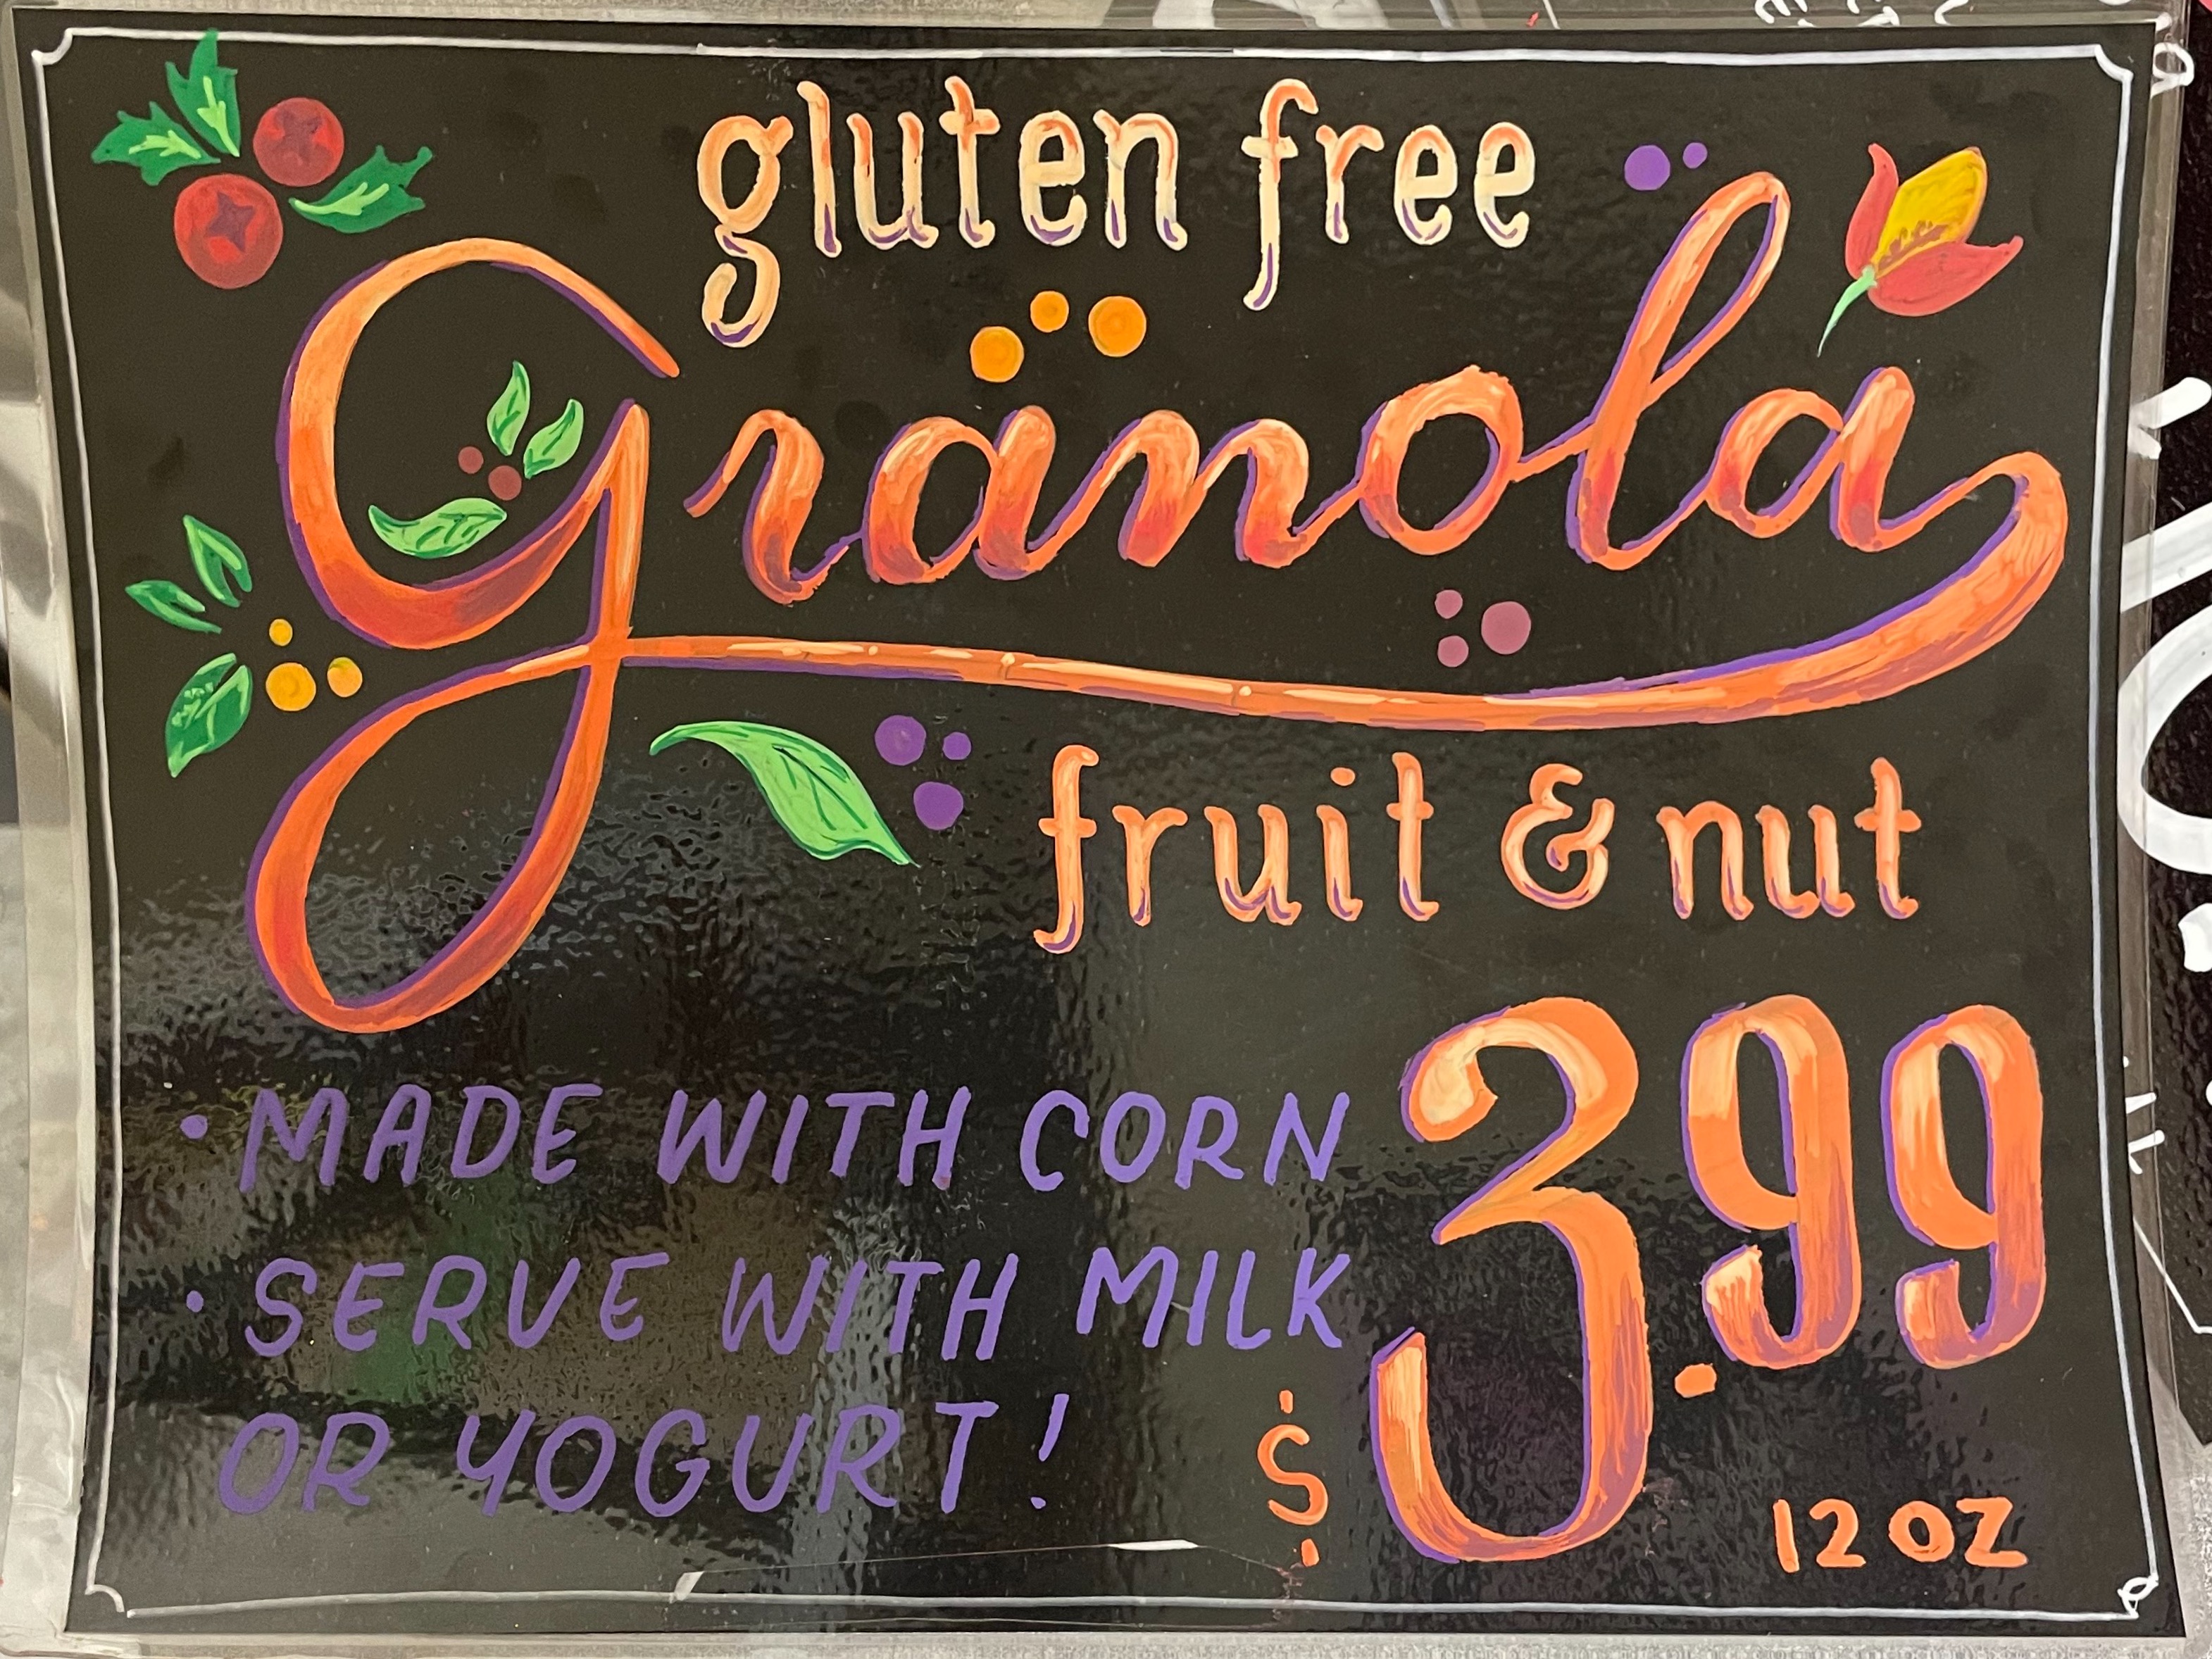 gluten free
Granola
fruit & nut
• MADE WITH CORN
• SERVE WITH MILK
OR YOGURT!
$3.99
12 OZ